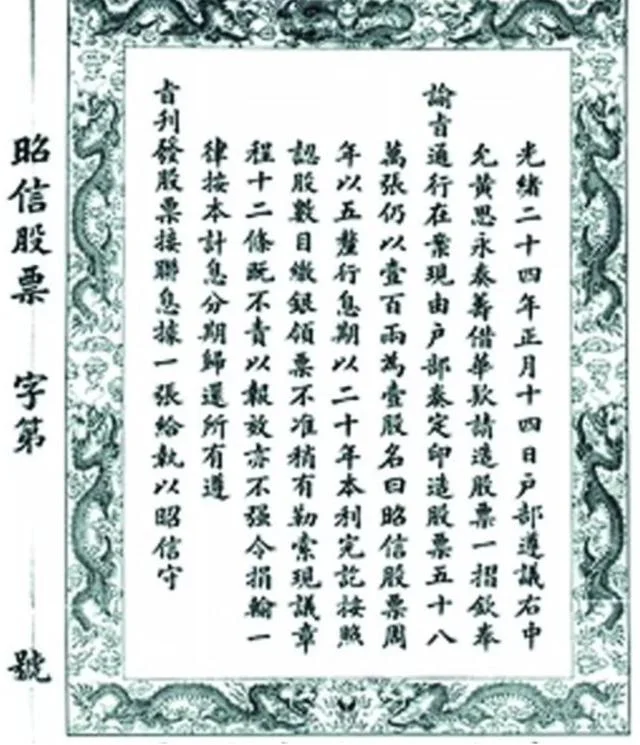 光緒二十四年正月十四日戶部遵議右中
允黃思永奏籌借華欵請造股票一摺欽奉
諭旨通行在案現由戶部奏定印造股票五十八
萬張仍以壹百兩為壹股名曰昭信股票周
年以五釐行息期以二十年本利完訖按照
認股數目繳銀領票不准稍有勒索現議章
程十二條既不責以報效亦不强令捐輸一
律按本計息分期歸還所有遵
旨刊發股票接聯息據一張給執以昭信守
昭信股票 字第 號